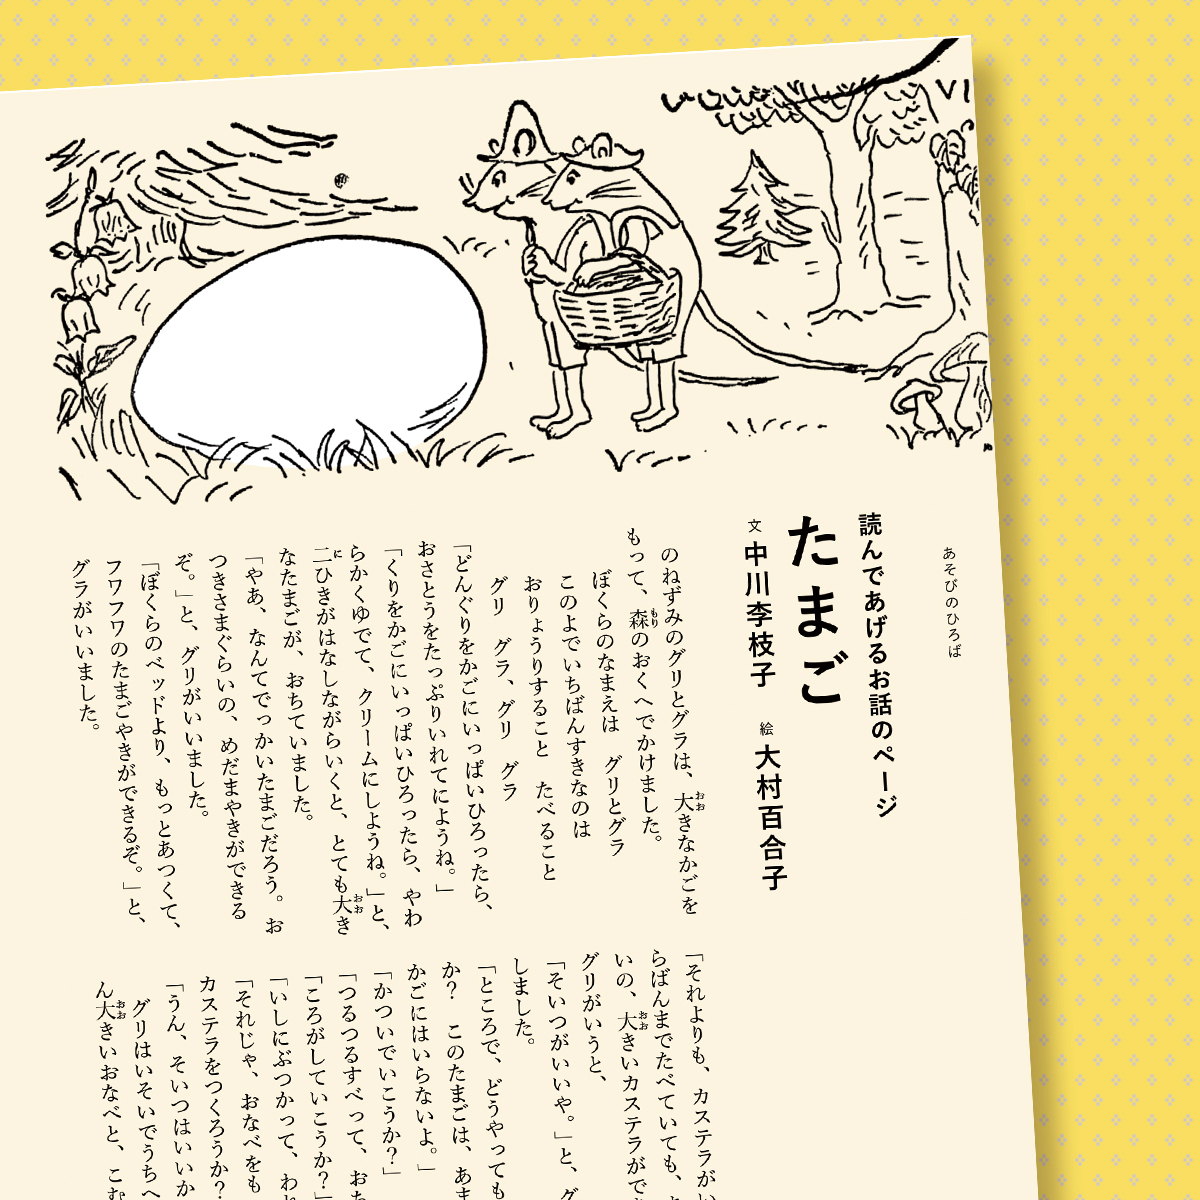 あそびのひろば
読んであげるお話のページ
たまご
文 中川李枝子 絵 大村百合子
のねずみのグリとグラは、大きなかごを
もって、森のおくへでかけました。
ぼくらのなまえは グリとグラ
このよでいちばんすきなのは
おりょうりすること たべること
グリ グラ、グリ グラ
「どんぐりをかごにいっぱいひろったら、
おさとうをたっぷりいれてにようね。」
「くりをかごにいっぱいひろったら、やわ
らかくゆでて、クリームにしようね。」と、
二ひきがはなしながらいくと、とても大き
なたまごが、おちていました。
「やあ、なんてでっかいたまごだろう。お
つきさまぐらいの、めだまやきができる
ぞ。」と、グリがいいました。
「ぼくらのベッドより、もっとあつくて、
フワフワのたまごやきができるぞ。」と、
グラがいいました。
「それよりも、カステラが
らばんまでたべていても、
いの、大きいカステラがで
グリがいうと、
「そいつがいいや。」と、グ
しました。
「ところで、どうやっても
か? このたまごは、あま
かごにはいらないよ。」
「かついでいこうか?」
「つるつるすべって、おた
「ころがしていこうか?」
「いしにぶつかって、われ
「それじゃ、おなべをも
カステラをつくろうか?
「うん、そいつはいいか
グリはいそいでうちへ
ん大きいおなべと、こむ